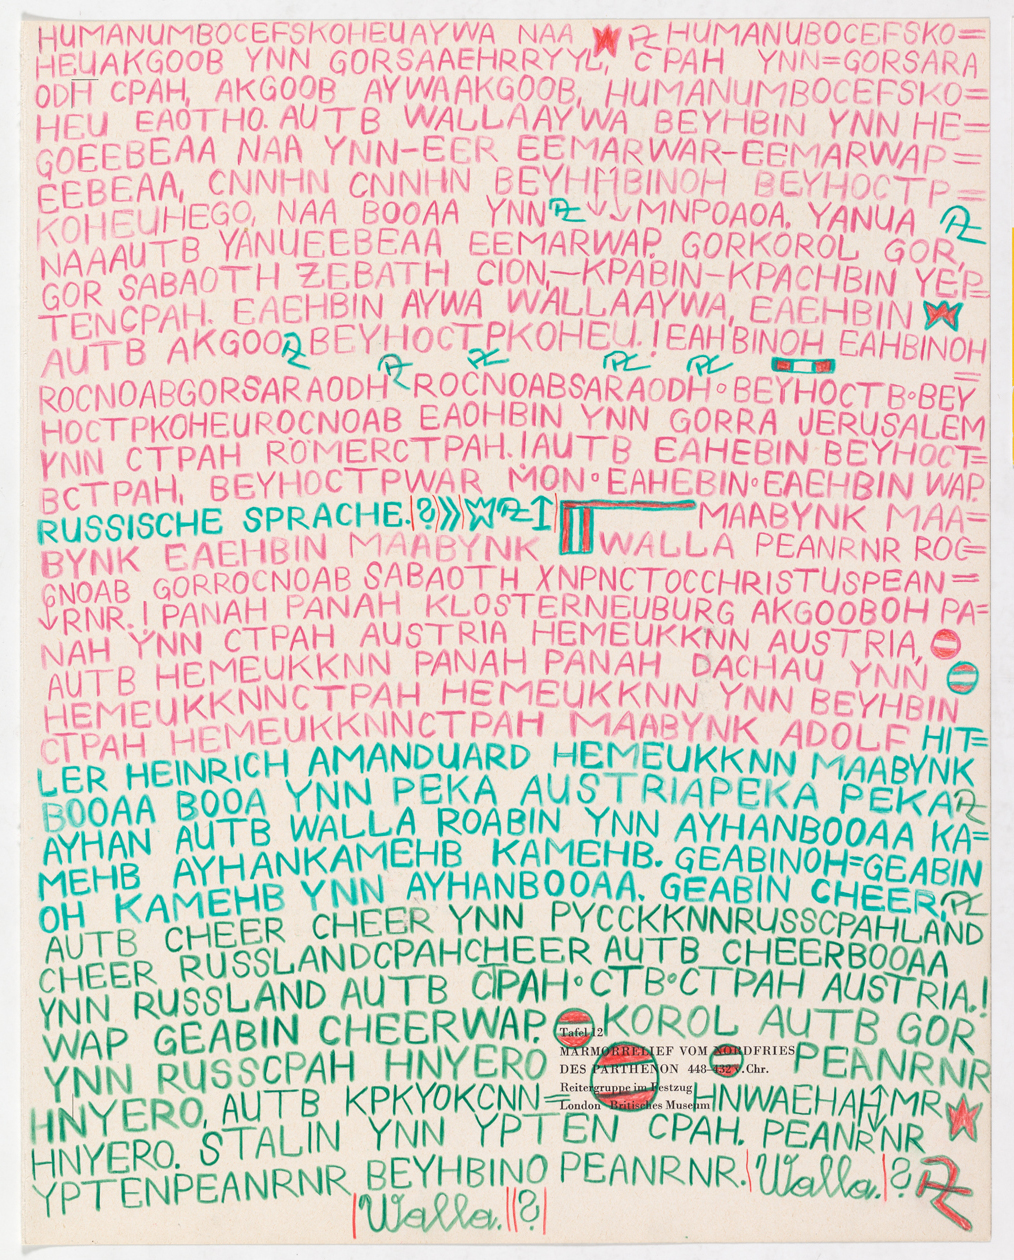 HUMANUMBOCEFSKOHEUAYWA NAA HUMANUBOCEFSKO=
HEUAKGOOB YNN GORSAAEHRRYYL, CPAH YNN=GORSARA
ODH CPAH, AKGOOB AYWAAKGOOB, HUMANUMBOCEFSKO=
HEU EAOTHO. AUTB WALLAAYWA BEYHBIN YNN HE=
GOEEBEAA NAA YNN-EER EEMARWAR-EEMARWAP=
EEBEAA, CNNHN CNNHN BEYHHBINOH BEYHOCTP=
KOHEUHEGO, NAA BOOAA YNN MNPOAOA. YANUA
NAAAUTB YANUEEBEAA EEMARWAP. GORKOROL GOR,
GOR SABAOTH ZEBATH CION,-KPABIN-KPACHBIN YEP=
TENCPAH. EAEHBIN AYWA WALLAAYWA, EAEHBIN
AUTB AKGOO BEYHOCTPKOHEU.! EAHBINOH EAHBINOH
ROCNOABGORSARAODH ROCNOABSARAODH°BEYHOCTB°BEY=
HOCTPKOHEUROCNOAB EAOHBIN YNN GORRA JERUSALEM
YNN CTPAH RÖMERCTPAH.! AUTB EAHEBIN BEYHOCT=
BCTPAH, BEYHOCTPWAR MON°EAHEBIN°EAEHBIN WAP.
RUSSISCHE SPRACHE. MAABYNK MAA=
BYNK EAEHBIN MAABYNK WALLA PEANRNR ROC=
CNOAB GORROCNOAB SABAOTH XNPNCTOCCHRISTUSPEAN=
RNR.! PANAH PANAH KLOSTERNEUBURG AKGOOBOH PA=
NAH YNN CTPAH AUSTRIA HEMEUKKNN AUSTRIA,
AUTB HEMEUKKNN PANAH PANAH DACHAU YNN
HEMEUKKNNCTPAH HEMEUKKNN YNN BEYHBIN
CTPAH HEMEUKKNNCTPAH MAABYNK ADOLF HIT=
LER HEINRICH AMANDUARD HEMEUKKNN MAABYNK
BOOAA BOOA YNN PEKA AUSTRIAPEKA PEKA
AYHAN AUTB WALLA ROABIN YNN AYHANBOOAA KA=
MEHB AYHANKAMEHB KAMEHB. GEABINOH=GEABIN
OH KAMEHB YNN AYHANBOOAA. GEABIN CHEER,
AUTB CHEER CHEER YNN PYCCKKNNRUSSCPAHLAND
CHEER RUSSLANDCPAHCHEER AUTB CHEERBOOAA
YNN RUSSLAND AUTB CPAH°CTB°CTPAH AUSTRIA.!
WAP GEABIN CHEERWAP. KOROL AUTB GOR
Tafel 12
MARMORRELIEF VOM NORDFRIES
YNN RUSSCPAH HNYERO PEANRNR
DES PARTHENON 448-432 v. Chr.
Reitergruppe im Festzug
HNYERO, AUTB KPKYOKCNN= HNWAEHAH MR
London Britisches Museum
HNYERO. STALIN YNN YPTEN CPAH. PEANRNR
YPTENPEANRNR BEYHBINO PEANRNR. Walla. ?
Walla. ?